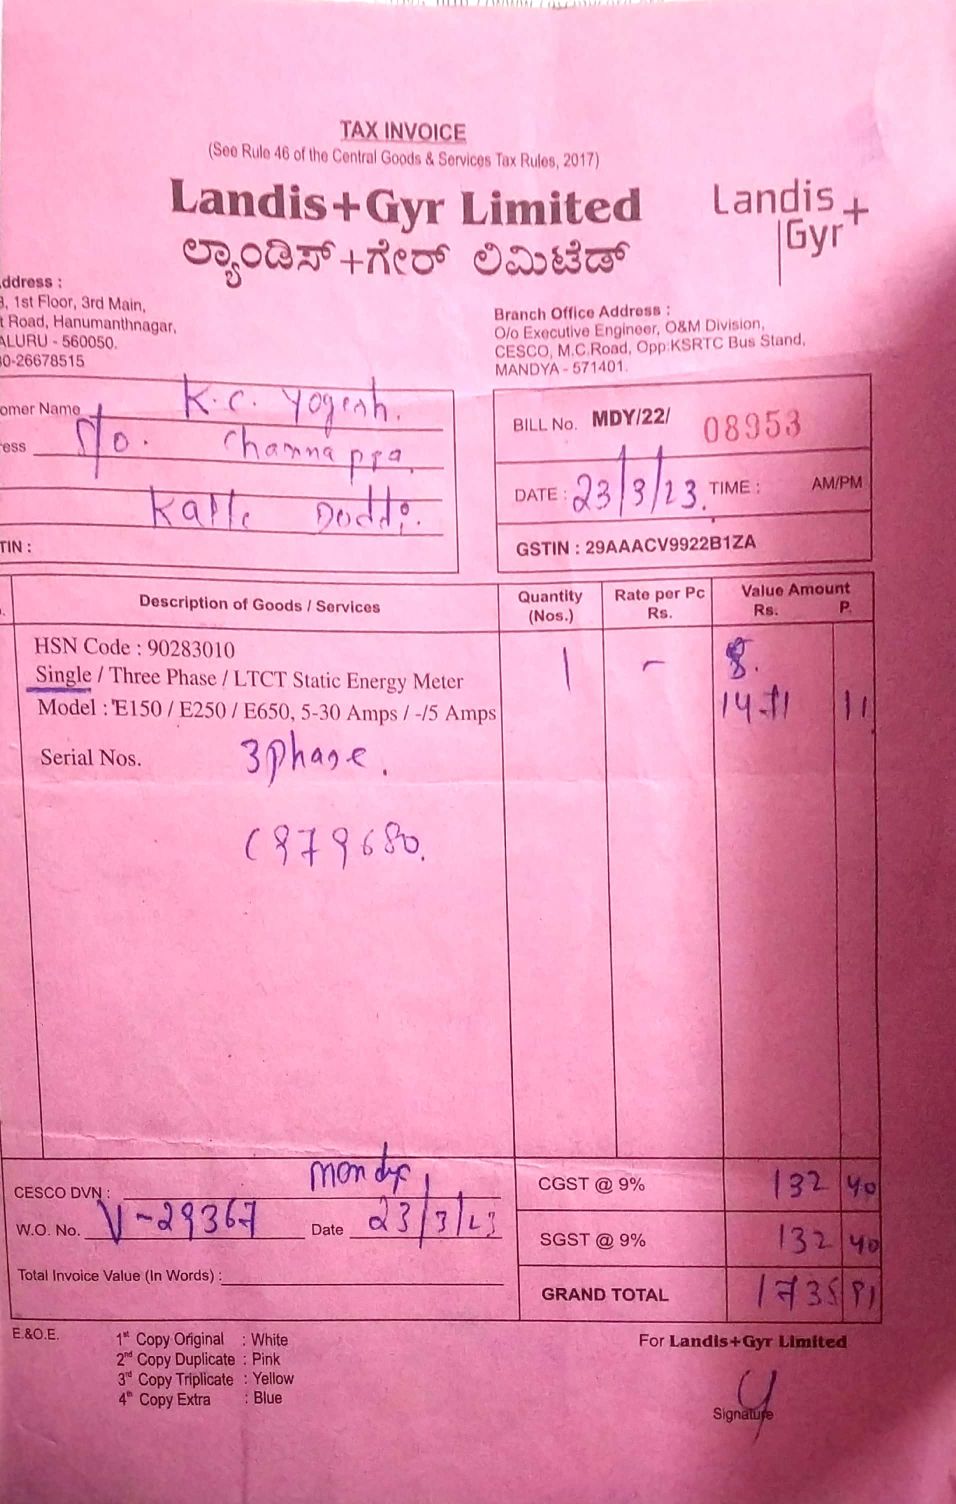 TAX INVOICE
(See Rule 46 of the Central Goods & Services Tax Rules, 2017)
Landis+Gyr Limited
ಲ್ಯಾಂಡಿಸ್+ಗೇರ್ ಲಿಮಿಟೆಡ್
Landis
Gyr+
ddress :
, 1st Floor, 3rd Main,
t Road, Hanumanthnagar,
ALURU - 560050.
0-26678515
Branch Office Address :
O/o Executive Engineer, O&M Division,
CESCO, M.C.Road, Opp:KSRTC Bus Stand,
MANDYA - 571401.
omer Name K.C. Yogesh.
ess S/o. Channappa.
Kalle Doddi.
TIN :
BILL No. MDY/22/ 08953
DATE : 23/3/23. TIME : AM/PM
GSTIN : 29AAACV9922B1ZA
Description of Goods / Services Quantity (Nos.) Rate per Pc Rs. Value Amount Rs. P.
HSN Code : 90283010
Single / Three Phase / LTCT Static Energy Meter 1 -
Model : E150 / E250 / E650, 5-30 Amps / -/5 Amps 1471 11
Serial Nos. 3 phase.
C979680.
CESCO DVN : CGST @ 9% 132 40
W.O. No. V-29367 Date 23/3/23 SGST @ 9% 132 40
Total Invoice Value (In Words) : GRAND TOTAL 1735 91
E.&O.E.
1st Copy Original : White
2nd Copy Duplicate : Pink
3rd Copy Triplicate : Yellow
4th Copy Extra : Blue
For Landis+Gyr Limited
Signature